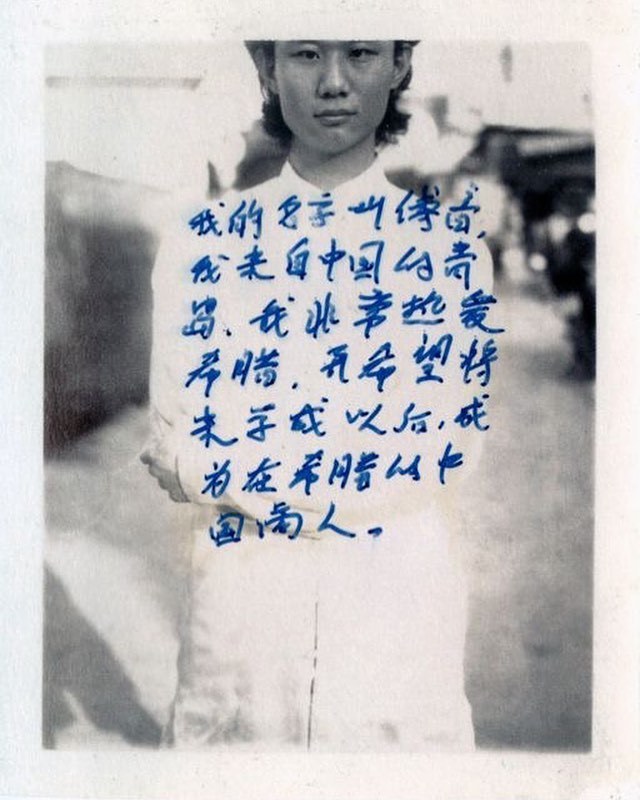 我的名字叫傅
我来自中国的青
岛、我非常热爱
希腊，并希望将
来学成以后，成
为在希腊的中
国商人。